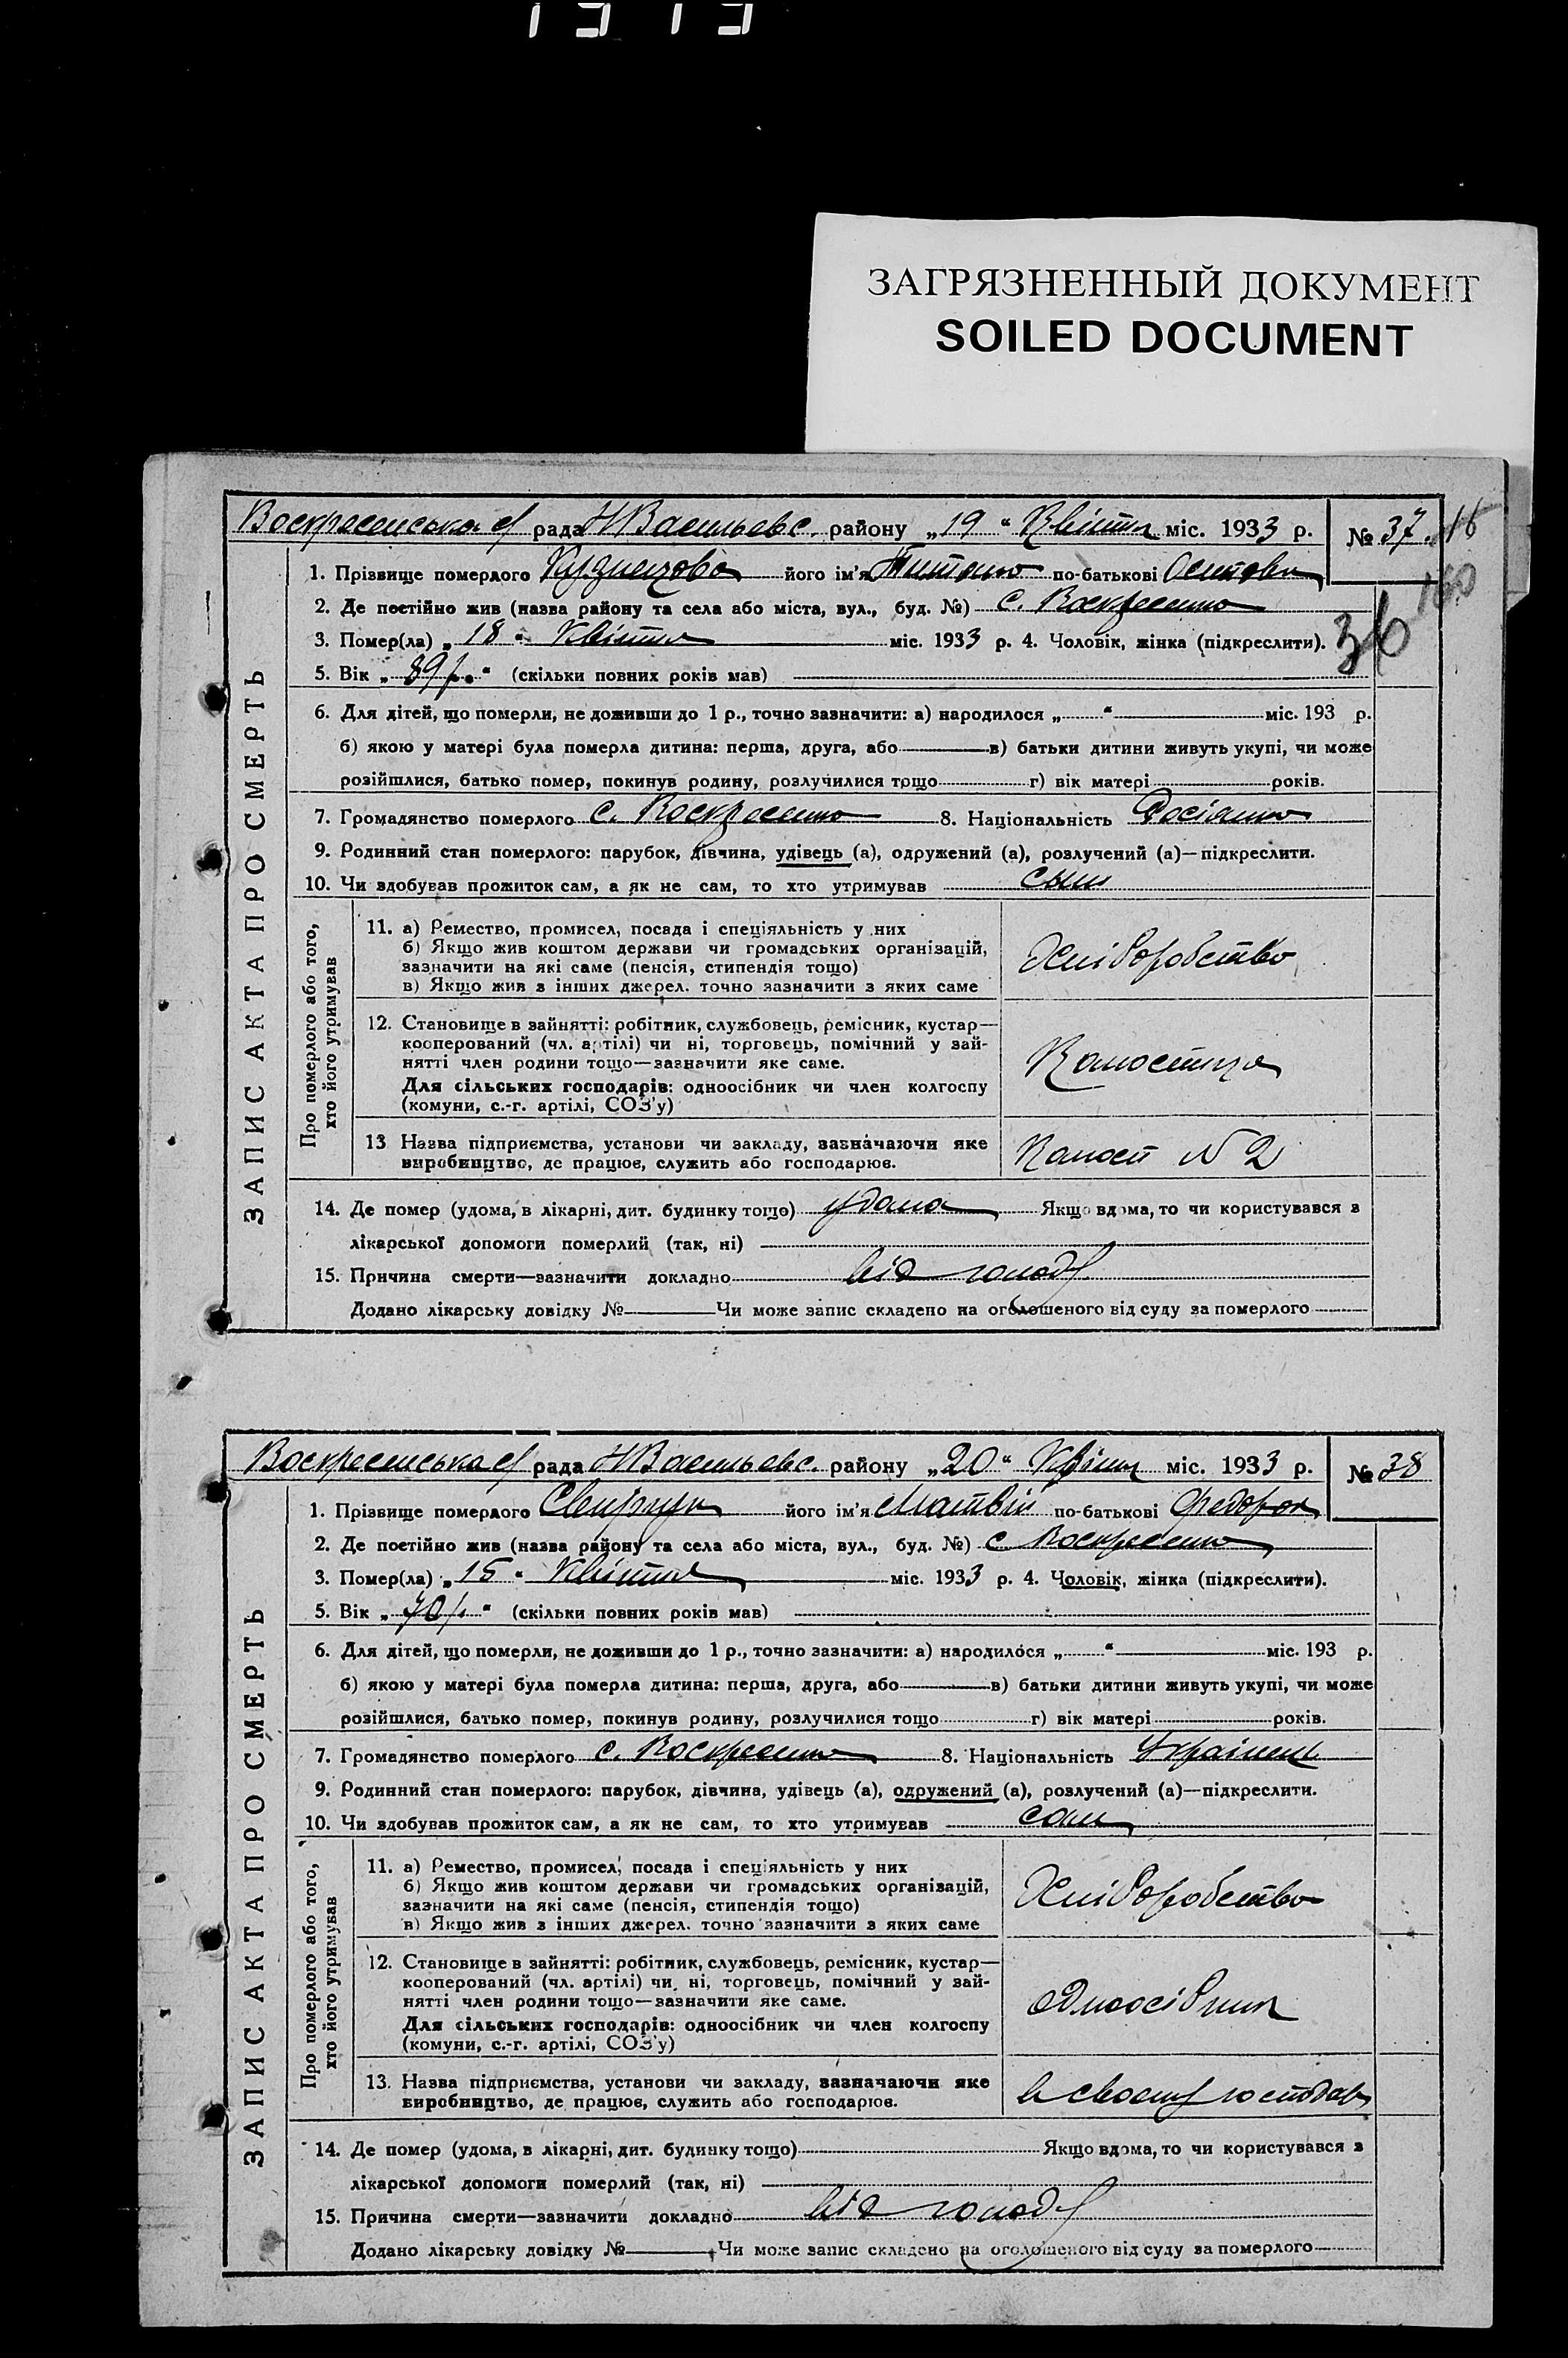 ЗАГРЯЗНЕННЫЙ ДОКУМЕНТ
SOILED DOCUMENT
Воскресенська с/ рада НВасильевс. району „19“ Квітня міс. 1933 р. № 37.
1. Прізвище померлого Кузнецова його ім'я по-батькові
2. Де постійно жив (назва району та села або міста, вул., буд. №) с. Воскресенка
3. Помер(ла) „18“ Квітня міс. 1933 р. 4. Чоловік, жінка (підкреслити).
36
5. Вік „89 р.“ (скільки повних років мав)
6. Для дітей, що померли, не доживши до 1 р., точно зазначити: а) народилося „ “ міс. 193 р.
б) якою у матері була померла дитина: перша, друга, або в) батьки дитини живуть укупі, чи може
розійшлися, батько помер, покинув родину, розлучилися тощо г) вік матері років.
7. Громадянство померлого с. Воскресенка 8. Національність Росіанка
9. Родинний стан померлого: парубок, дівчина, удівець (а), одружений (а), розлучений (а)—підкреслити.
10. Чи здобував прожиток сам, а як не сам, то хто утримував сын
ЗАПИС АКТА ПРО СМЕРТЬ
Про померлого або того,
хто його утримував
11. а) Ремество, промисел, посада і спеціяльність у них
б) Якщо жив коштом держави чи громадських організацій,
зазначити на які саме (пенсія, стипендія тощо)
в) Якщо жив з інших джерел. точно зазначити з яких саме
Хліборобство
12. Становище в зайнятті: робітник, службовець, ремісник, кустар—
кооперований (чл. артілі) чи ні, торговець, помічний у зай-
нятті член родини тощо—зазначити яке саме.
Для сільських господарів: одноосібник чи член колгоспу
(комуни, с.-г. артілі, СОЗ'у)
13 Назва підприємства, установи чи закладу, зазначаючи яке
виробництво, де працює, служить або господарює.
№ 2
14. Де помер (удома, в лікарні, дит. будинку тощо) удома Якщо вдома, то чи користувався з
лікарської допомоги померлий (так, ні)
15. Причина смерти—зазначити докладно від голоду
Додано лікарську довідку № Чи може запис складено на оголошеного від суду за померлого
Воскресенська с/ рада НВасильевс. району „20“ Квітн міс. 1933 р. № 38
1. Прізвище померлого його ім'я Матвій по-батькові Федоров
2. Де постійно жив (назва району та села або міста, вул., буд. №) с. Воскресенка
3. Помер(ла) „15“ Квітня міс. 1933 р. 4. Чоловік, жінка (підкреслити).
5. Вік „70 р.“ (скільки повних років мав)
6. Для дітей, що померли, не доживши до 1 р., точно зазначити: а) народилося „ “ міс. 193 р.
б) якою у матері була померла дитина: перша, друга, або в) батьки дитини живуть укупі, чи може
розійшлися, батько помер, покинув родину, розлучилися тощо г) вік матері років.
7. Громадянство померлого с. Воскресенка 8. Національність Українец
9. Родинний стан померлого: парубок, дівчина, удівець (а), одружений (а), розлучений (а)—підкреслити.
10. Чи здобував прожиток сам, а як не сам, то хто утримував сам
ЗАПИС АКТА ПРО СМЕРТЬ
Про померлого або того,
хто його утримував
11. а) Ремество, промисел, посада і спеціяльність у них
б) Якщо жив коштом держави чи громадських організацій,
зазначити на які саме (пенсія, стипендія тощо)
в) Якщо жив з інших джерел. точно зазначити з яких саме
Хліборобство
12. Становище в зайнятті: робітник, службовець, ремісник, кустар—
кооперований (чл. артілі) чи ні, торговець, помічний у зай-
нятті член родини тощо—зазначити яке саме.
Для сільських господарів: одноосібник чи член колгоспу
(комуни, с.-г. артілі, СОЗ'у)
одноосібник
13. Назва підприємства, установи чи закладу, зазначаючи яке
виробництво, де працює, служить або господарює.
в своему господар
14. Де помер (удома, в лікарні, дит. будинку тощо) Якщо вдома, то чи користувався з
лікарської допомоги померлий (так, ні)
15. Причина смерти—зазначити докладно від голоду
Додано лікарську довідку № Чи може запис складено на оголошеного від суду за померлого